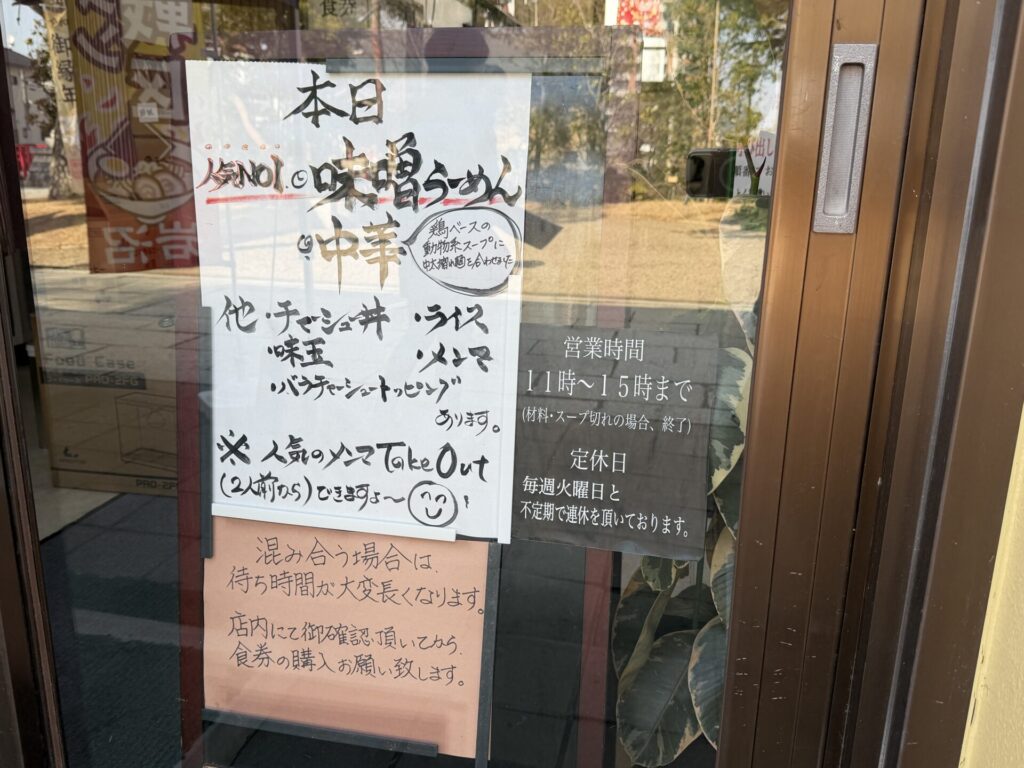 本日
人気NO1.
・味噌らーめん
・中華
鶏ベースの
動物系スープに
中太縮れ麺を合わせました
他・チャーシュー丼 ・ライス
・味玉 ・メンマ
・バラチャーシュートッピング
あります。
※ 人気のメンマ Take Out
(2人前から)できますよ〜
混み合う場合は、
待ち時間が大変長くなります。
店内にて御確認頂いてから、
食券の購入お願い致します。
営業時間
11時〜15時まで
(材料・スープ切れの場合、終了)
定休日
毎週火曜日と
不定期で連休を頂いております。
岩沼
Food Case
PRO-2FG